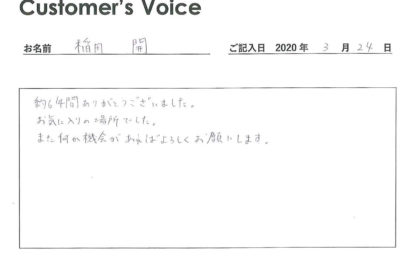 Customer's Voice
お名前 稲月 開 ご記入日 2020 年 3 月 24 日
約6年間ありがとうございました。
お気に入りの場所でした。
また何か機会があればよろしくお願いします。